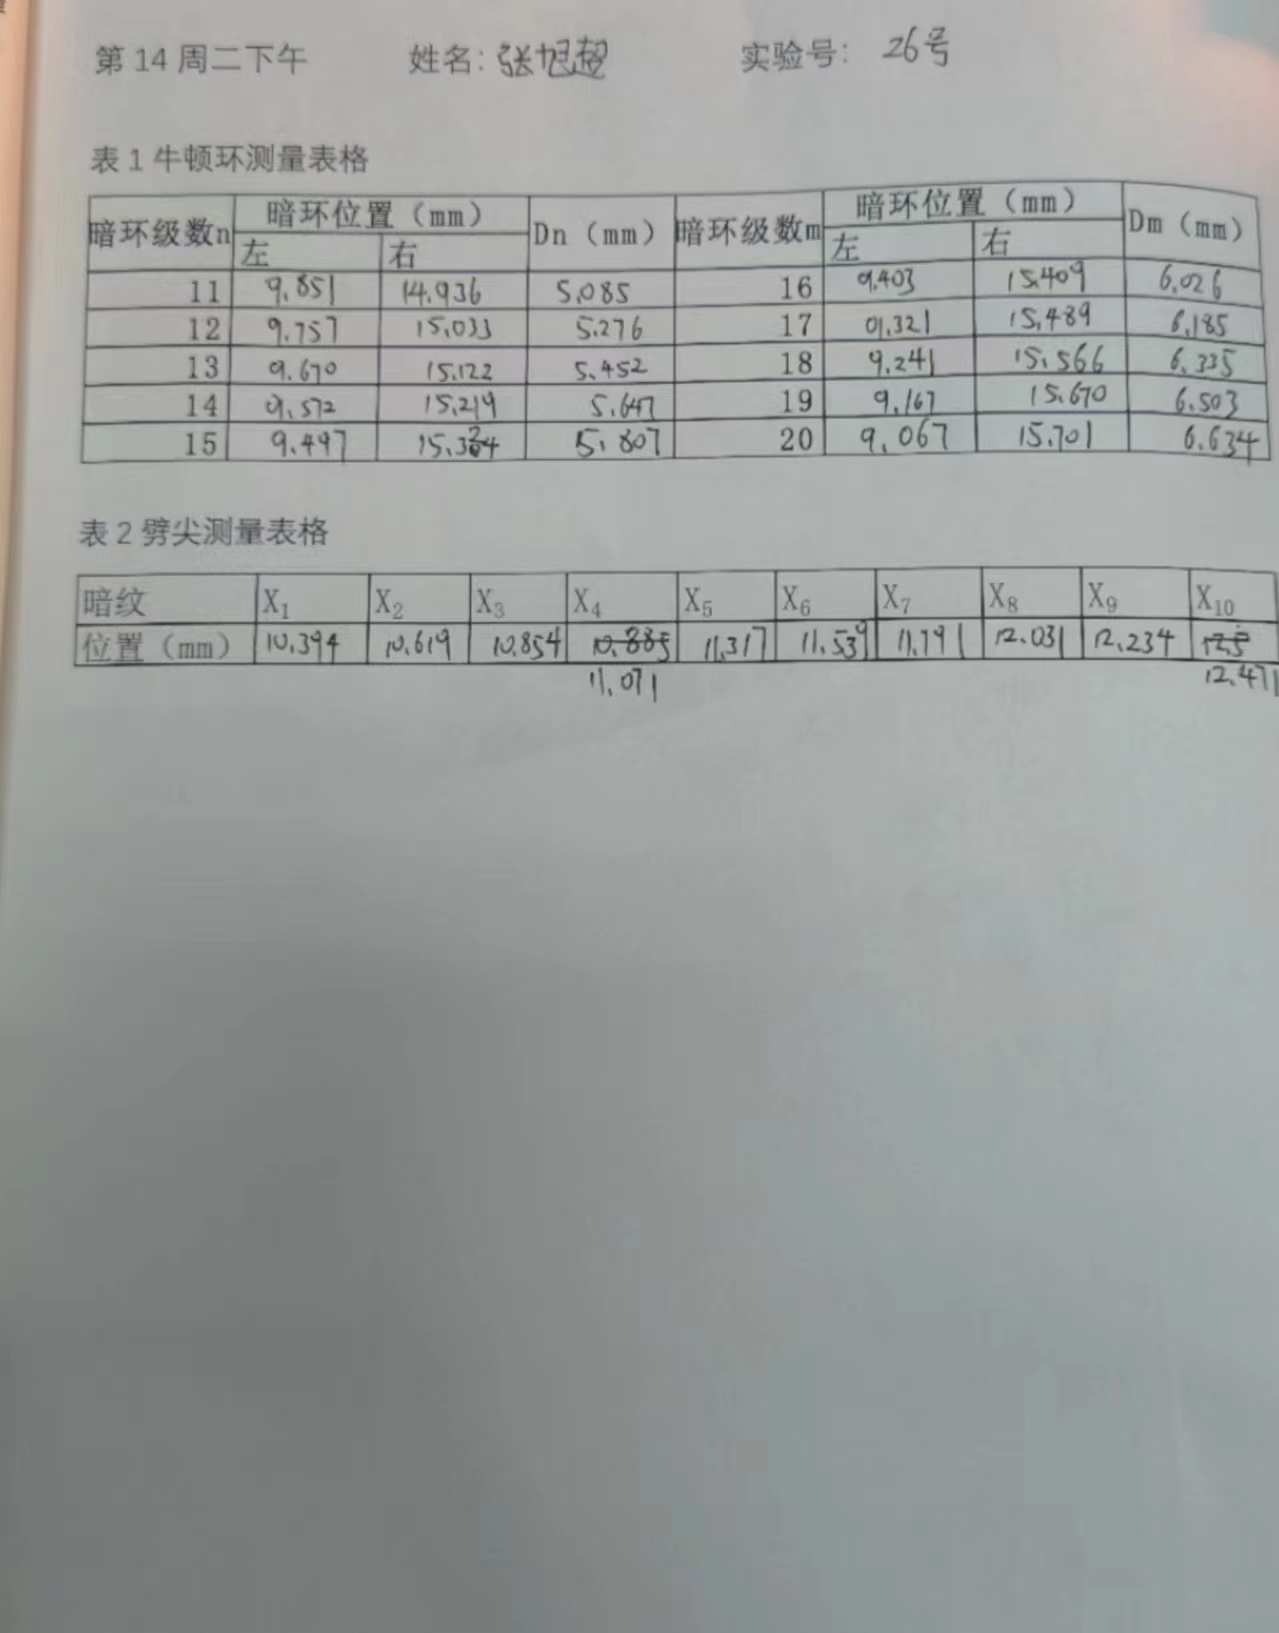 第 14 周二下午 姓名: 张旭超 实验号: 26号
表 1 牛顿环测量表格
暗环级数n 暗环位置（mm） Dn（mm） 暗环级数m 暗环位置（mm） Dm（mm）
左 右 左 右
11 9.851 14.936 5.085 16 9.403 15.409 6.026
12 9.757 15.033 5.276 17 9.321 15.489 6.185
13 9.670 15.122 5.452 18 9.241 15.566 6.335
14 9.572 15.219 5.647 19 9.167 15.670 6.503
15 9.497 15.304 5.807 20 9.067 15.701 6.634
表 2 劈尖测量表格
暗纹 X1 X2 X3 X4 X5 X6 X7 X8 X9 X10
位置（mm） 10.394 10.619 10.854 10.885 11.317 11.539 11.791 12.031 12.234 12.5
11.071 12.471